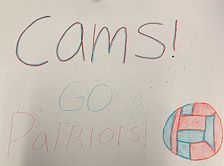 Cams!
GO
PaTRIOTS!